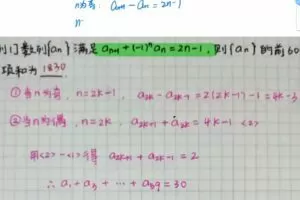 n为奇: aₙ₊₁ - aₙ = 2n-1
n
例1] 数列{aₙ} 满足 aₙ₊₁ + (-1)ⁿaₙ = 2n-1, 则{aₙ} 的前60
项和为 1830
①当n为奇, n=2k-1, a₂ₖ - a₂ₖ₋₁ = 2(2k-1)-1 = 4k-3
②当n为偶, n=2k, a₂ₖ₊₁ + a₂ₖ = 4k-1 <2>
用<2>-<1>得 a₂ₖ₊₁ + a₂ₖ₋₁ = 2
∴ a₁+a₃+ ⋯ +a₅₉ = 30